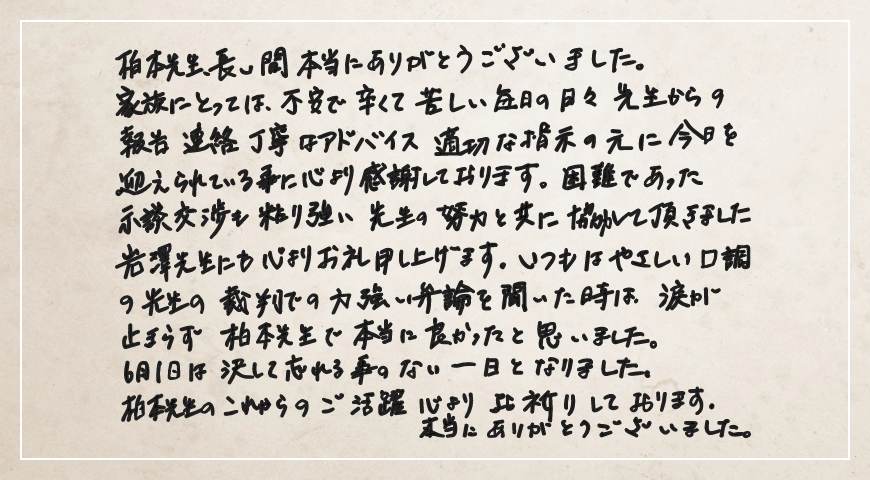 柏本先生、長い間本当にありがとうございました。
家族にとっては、不安で辛くて苦しい毎日の日々先生からの
報告連絡丁寧なアドバイス適切な指示の元に今日を
迎えられている事に心より感謝しております。困難であった
示談交渉も粘り強い先生の努力と共に協力して頂きました
岩澤先生にも心よりお礼申し上げます。いつもはやさしい口調
の先生の裁判での力強い弁論を聞いた時は、涙が
止まらず柏本先生で本当に良かったと思いました。
6月1日は決して忘れる事のない一日となりました。
柏本先生のこれからのご活躍心よりお祈りしております。
本当にありがとうございました。